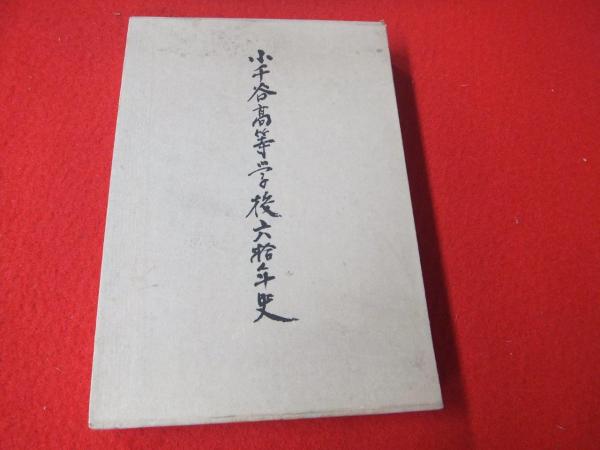 小千谷高等学校六拾年史